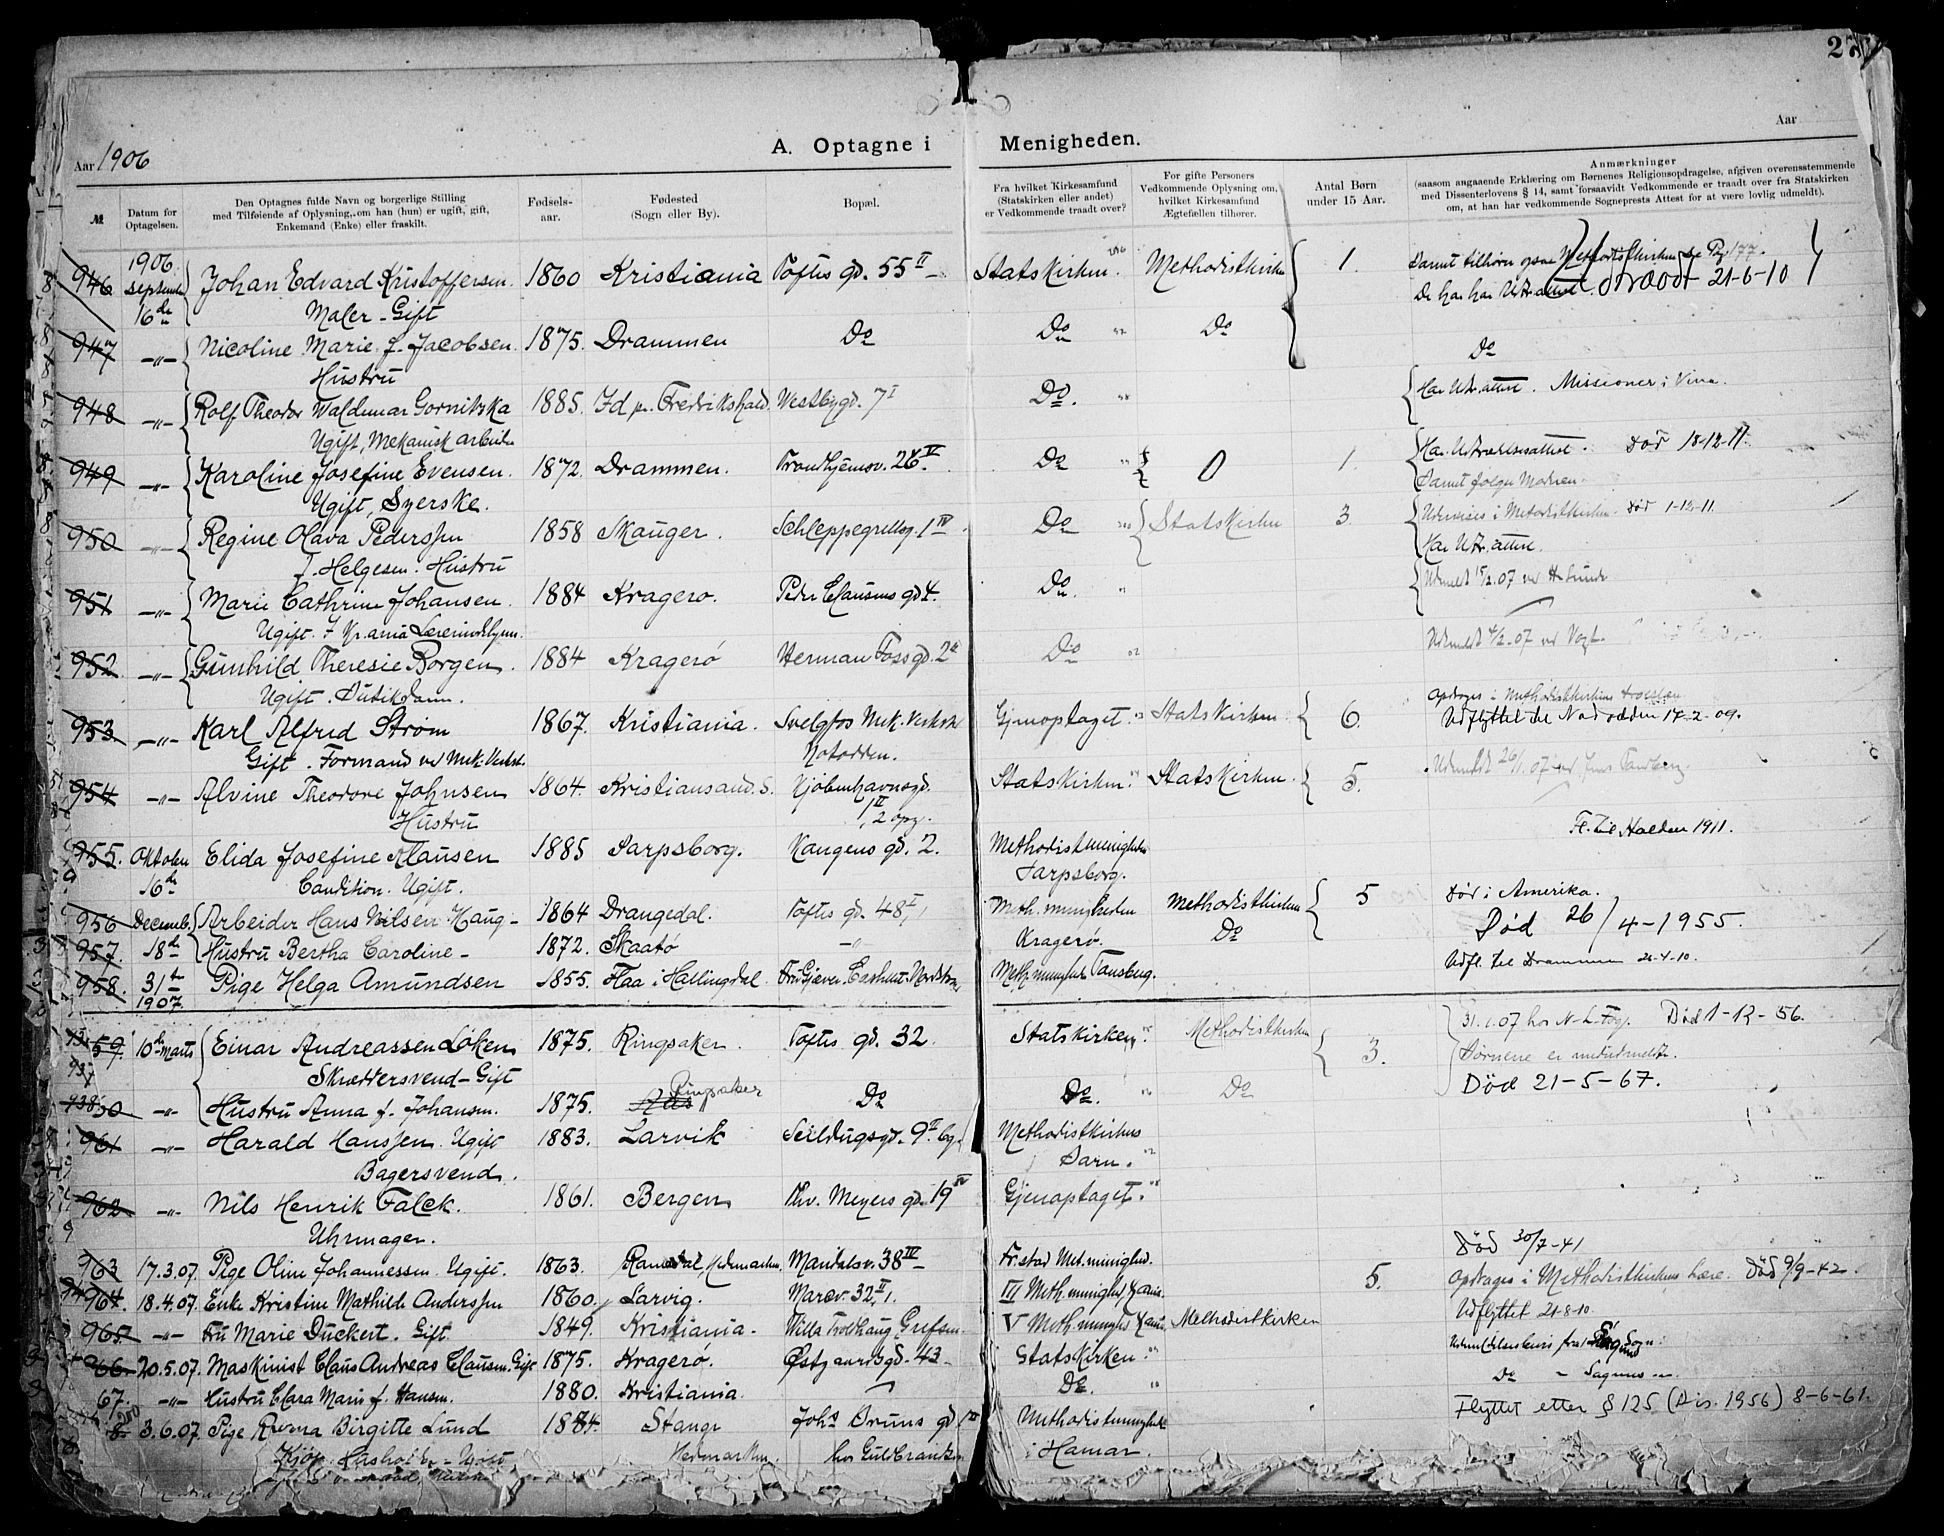 27
Aar 1906
A. Optagne i Menigheden.
Aar
№
Datum for Optagelsen.
Den Optagnes fulde Navn og borgerlige Stilling
med Tilføiende af Oplysning, om han (hun) er ugift, gift,
Enkemand (Enke) eller fraskilt.
Fødsels-aar.
Fødested
(Sogn eller By).
Bopæl.
Fra hvilket Kirkesamfund
(Statskirken eller andet)
er Vedkommende traadt over?
For gifte Personers
Vedkommende Oplysning om,
hvilket Kirkesamfund
Ægtefællen tilhører.
Antal Børn
under 15 Aar.
Anmærkninger
(saasom angaaende Erklæring om Børnenes Religionsopdragelse, afgiven overensstemmende
med Dissenterlovens § 14, samt forsaavidt Vedkommende er traadt over fra Statskirken
om, at han har vedkommende Sogneprests Attest for at være lovlig udmeldt).
1906
946 September Johan Edvard Kristoffersen. 1860 Kristiania Toftes gd. 55 II Statskirken. Methodistkirken 1. Barnet tilhører ogsaa Methodistkirken
16de Maler - Gift De har har Utr. attest. Utraadt 21-6-10
947 -"- Nicoline Marie f. Jacobsen. 1875. Drammen Do Do " Do Do
Hustru
948 -"- Rolf Theodor Waldemar Gornitzka 1885. Id pr. Fredrikshald. Vestbygd. 7 I Do. " Har Utr. attest. Missioner i
Ugift, Mekanisk arbeider
949 -"- Karoline Josefine Evensen. 1872. Drammen. Trondhjemsv. 26 IV Do " 0 1. Har Udtrædelsesattest. Død 18-12-11.
Ugift, Syerske. Barnet følger Modren.
950 -"- Regine Olava Pederssen 1858 Skauger. Schleppegrellsg. 1 IV Do " Statskirken 3 Undervises i Metodistkirken. Død 1-12-11.
f. Helgesen. Hustru Har Utr. attest.
951 -"- Marie Cathrine Johansen. 1884 Kragerø. Peder Clausens gd 4. Do. " Udmeldt 15/2.07 ved
Ugift.
952 -"- Gunhild Theresie Borgen. 1884 Kragerø Herman Foss gd. 2 Do " Udmeldt 4/2.07 ved Vogt.
Ugift. Butikdame.
953 -"- Karl Alfred Strøm 1867. Kristiania. Svelgfos Mek. Verksted Gjenoptaget. " Statskirken. 6 Opdrages i Methodistkirkens
Gift. Formand ved Mek. Verkst. Notodden. Udflyttet til Notodden 17-2-09.
954 -"- Alvine Theodore Johnsen 1864. Kristiansand. S. Kjøbenhavnsgd. Statskirken. " Statskirken. 5. Udmeldt 26/1.07 ved
Hustru 1 II, 2 opg.
955. Oktober Elida Josefine Klausen 1885 Sarpsborg. Kangens gd. 2. Methodistmenigheden Fl. til Halden 1911.
16de Condition. Ugift. Sarpsborg.
956 Decemb. Arbeider Hans Nilsen Haug - 1864 Drangedal. Toftes gd. 48 I, 1 Meth. menigheden Methodistkirken 5 Død i Amerika.
957. 18de Hustru Bertha Caroline - 1872. Skaatø -"- Kragerø. Do Død 26/4-1955.
958. 31te Pige Helga Amundsen 1855. Flaa i Hallingdal. Meth. menighed Tønsberg. Udfl. til Drammen 21-4-10.
1907.
59. 10de marts Einar Andreassen Løken 1875. Ringsaker. Toftes gd. 32. Statskirken. " Methodistkirken 3. 31.1.07 hos Død 1-12-56.
937 Skræddersvend - Gift Børnene er
938 -"- Hustru Anna f. Johansen. 1875. Ringsaker Do Do. " Do Død 21-5-67.
961 -"- Harald Hanssen. Ugift 1883. Larvik Seildugsgd. 9 II Methodistkirkens
Bagersvend. Barn. "
962 -"- Nils Henrik Falck. 1861. Bergen Thv. Meyers gd. 19 IV Gjenoptaget. "
Uhrmager.
963 17.3.07. Pige Oline Johannessen. Ugift. 1863. Romedal, Hedemarken. Maridalsv. 38 IV Fr.stad Met. menighed. Død 30/7-41
964. 18.4.07. Enke Kristine Mathilde Anderssen 1860. Larvig. Marcv. 32 II, 1. III Meth. menighed, Kania. 5. Opdrages i Methodistkirkens Lære. Død 9/9-42.
965. -"- Fru Marie Duckert. Gift. 1849. Kristiania. Villa Trolhaug, Grefsen V Meth. menighed Kania. Methodistkirken Udflyttet 21-8-10.
66. 20.5.07. Maskinist Claus Andreas Clausen. Gift 1875. Kragerø. Østgaardsgd. 43 Statskirken. " Udmeldelsesbevis fra Sagene Sogn.
67. -"- Hustru Clara Marie f. Hansen. 1880. Kristiania. Do. " Do - Sagenes -"-
8. 3.6.07. Pige, Ragna Birgitte Lund 1884. Stange Johs Bruns gd 1 II Methodistmenigheden Flyttet etter § 125 (Dis. 1956) 8-6-61.
Ugift Hedmarken. hos Guldbrandsen i Hamar.